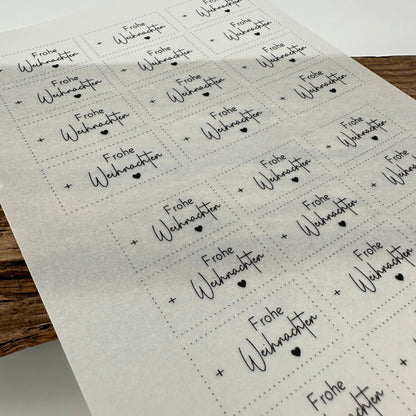 Frohe
Weihnachten
Frohe
Weihnachten
Frohe
Weihnachten
Frohe
Weihnachten
Frohe
Weihnachten
Frohe
Weihnachten
Frohe
Weihnachten
Frohe
Weihnachten
Frohe
Weihnachten
Frohe
Weihnachten
Frohe
Weihnachten
Frohe
Weihnachten
Frohe
Weihnachten
Frohe
Weihnachten
Frohe
Weihnachten
Frohe
Weihnachten
Frohe
Weihnachten
Frohe
Weihnachten
Frohe
Weihnachten
Frohe
Weihnachten
Frohe
Weihnachten